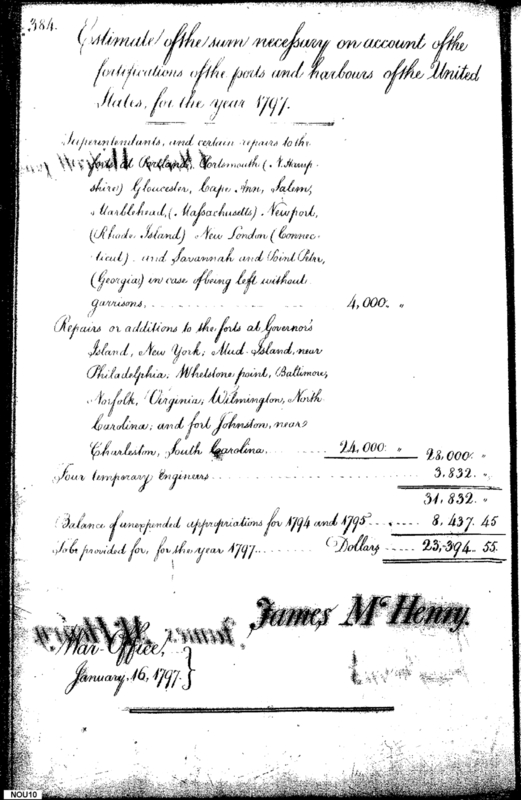 384.
Estimate of the sum necessary on account of the
fortifications of the ports and harbours of the United
States, for the year 1797.
Superintendants, and certain repairs to the
forts at Portland, Portsmouth (N. Hamp-
shire) Gloucester, Cape Ann, Salem,
Marblehead, (Massachusetts) Newport,
(Rhode Island) New London (Connec-
ticut) and Savannah and Point Petre,
(Georgia) in case of being left without
garrisons. 4,000. "
Repairs or additions to the forts at Governor's
Island, New York; Mud-Island, near
Philadelphia; Whetstone point, Baltimore;
Norfolk, Virginia; Wilmington, North
Carolina; and fort Johnston, near
Charleston, South Carolina. 24,000. " 28,000. "
Four temporary Engineers 3,832. "
31,832. "
Balance of unexpended appropriations for 1794 and 1795 8,437.45
To be provided for, for the year 1797. Dollars 23,394.55.
James McHenry.
War-Office,
January, 16, 1797.
NOU10